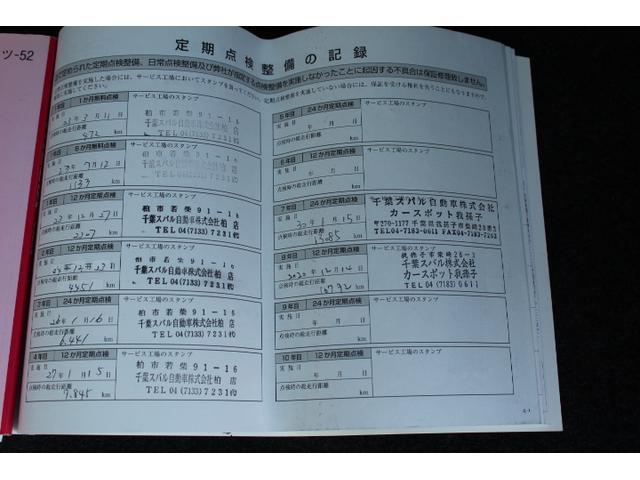 ツ-52
定期点検整備の記録
で定められた定期点検整備、日常点検整備及び弊社が指定する点検整備を実施しなかったことに起因する不具合は保証修理致しません。
整備を実施した場合には、サービス工場においてスタンプを押って
定期点検整備を実施していない場合には、保証を受ける権利を失うことにもなりますので、
実施してください。
1か月無料点検
サービス工場のスタンプ
柏市若柴91-16
千葉スバル自動車株式会社柏店
TEL 04(7133)7231
472 km
6か月無料点検
サービス工場のスタンプ
柏市若柴91-16
千葉スバル自動車株式会社柏店
TEL 04(7133)7231
点検時の総走行距離
1133 km
12か月定期点検
サービス工場のスタンプ
12月27日
柏市若柴91-16
千葉スバル自動車株式会社柏店
TEL 04(7133)7231㈹
点検時の総走行距離
km
2年目 12か月定期点検
サービス工場のスタンプ
柏市若柴91-16
千葉スバル自動車株式会社柏店
TEL 04(7133)7231㈹
点検時の総走行距離
4451 km
3年目 24か月定期点検
サービス工場のスタンプ
実施日
26年1月16日
柏市若柴91-16
千葉スバル自動車株式会社柏店
TEL 04(7133)7231㈹
点検時の総走行距離
6,441 km
4年目 12か月定期点検
サービス工場のスタンプ
実施日
27年1月15日
柏市若柴91-16
千葉スバル自動車株式会社柏店
TEL 04(7133)7231㈹
点検時の総走行距離
7,845 km
5年目 24か月定期点検
サービス工場のスタンプ
実施日
年 月 日
点検時の総走行距離
km
6年目 12か月定期点検
サービス工場のスタンプ
実施日
年 月 日
点検時の総走行距離
km
7年目 24か月定期点検
サービス工場のスタンプ
実施日
30年1月15日
千葉スバル自動車株式会社
カースポット我孫子
〒270-1177 千葉県我孫子市柴崎28-1
TEL04-7183-0611 FAX04-7183-7263
点検時の総走行距離
km
8年目 12か月定期点検
サービス工場のスタンプ
実施日
2020年12月12日
我孫子市柴崎28-1
千葉スバル自動車株式会社
カースポット我孫子
TEL 04(7183)0611
点検時の総走行距離
km
9年目 24か月定期点検
サービス工場のスタンプ
実施日
年 月 日
点検時の総走行距離
km
10年目 12か月定期点検
サービス工場のスタンプ
実施日
年 月 日
点検時の総走行距離
km